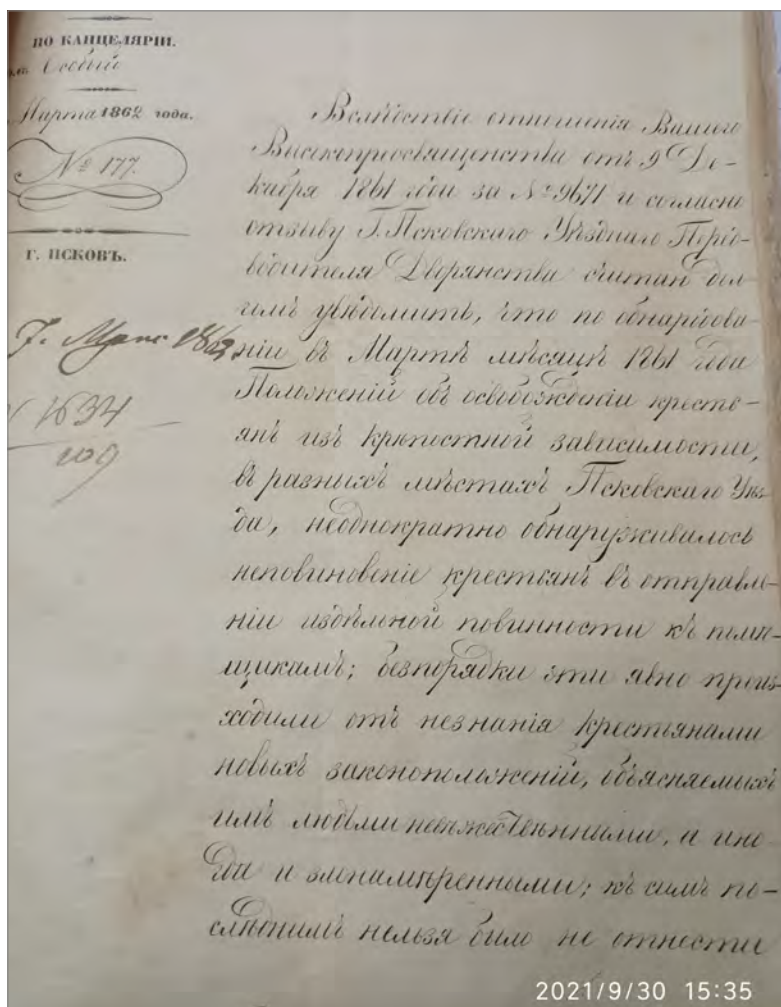 ПО КАНЦЕЛЯРІИ.
Особый
Марта 1862 года.
№ 177.
Г. ПСКОВЪ.
1634
109
Вслѣдствіе отношенія Вашего
Высокопреосвященства отъ 9 Де-
кабря 1861 года за № 9671 и согласно
отзыву Г. Псковскаго Уѣзднаго Предво-
дителя Дворянства считаю дол-
гомъ увѣдомить, что по обнародова-
ніи въ Мартѣ мѣсяцѣ 1861 года
Положеній объ освобожденіи кресть-
янъ изъ крѣпостной зависимости,
въ разныхъ мѣстахъ Псковскаго Уѣз-
да, неоднократно обнаруживалось
неповиновеніе крестьянъ въ отправле-
ніи издѣльной повинности къ помѣ-
щикамъ; безпорядки эти явно проис-
ходили отъ незнанія крестьянами
новыхъ законоположеній, объясняемыхъ
имъ людьми невѣжественными, а ино-
гда и злонамѣренными; къ симъ по-
слѣднимъ нельзя было не отнести
2021/9/30 15:35